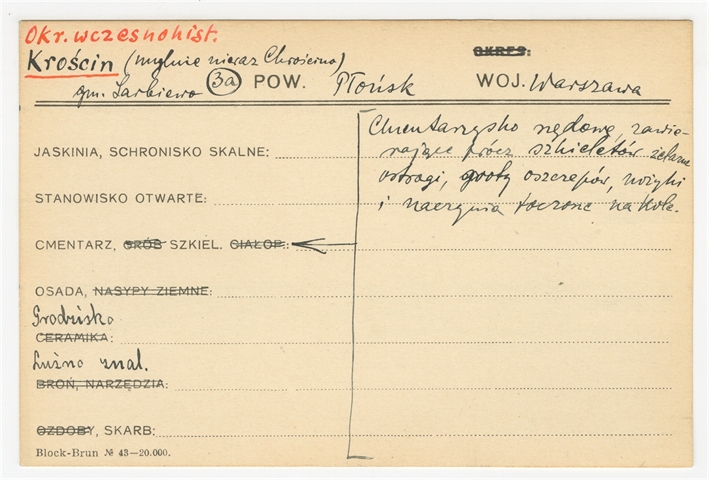 Okr. wczesnohist.
Krościn (mylnie nieraz Chrościno) OKRES:
gm. Sarbiewo 3a POW. Płońsk WOJ. Warszawa
Cmentarzysko rzędowe, zawie-
rające prócz szkieletów żelazne
JASKINIA, SCHRONISKO SKALNE:
ostrogi, groty oszczepów, nożyki
STANOWISKO OTWARTE:
i naczynia toczone na kole.
CMENTARZ, GRÓB SZKIEL. CIAŁOP.:
OSADA, NASYPY ZIEMNE:
Grodzisko
CERAMIKA:
Luźno znal.
BROŃ, NARZĘDZIA:
OZDOBY, SKARB:
Block-Brun № 43—20.000.